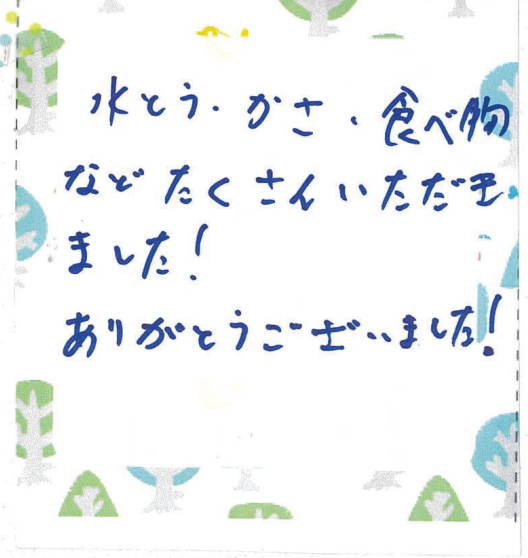 水とう・かさ、食べ物
などたくさんいただき
ました!
ありがとうございました!